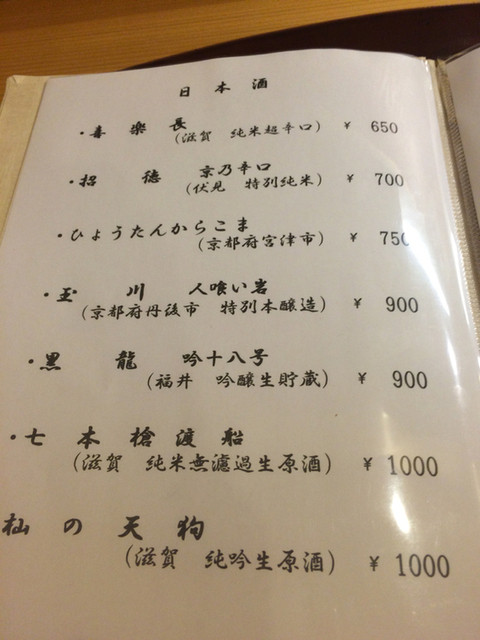 日本酒
・喜楽長
(滋賀 純米超辛口) ¥ 650
・招徳 京乃辛口
(伏見 特別純米) ¥ 700
・ひょうたんからこま
(京都府宮津市) ¥ 750
・玉川 人喰い岩
(京都府丹後市 特別本醸造) ¥ 900
・黒龍 吟十八号
(福井 吟醸生貯蔵) ¥ 900
・七本槍渡船
(滋賀 純米無濾過生原酒) ¥ 1000
杣の天狗
(滋賀 純吟生原酒) ¥ 1000